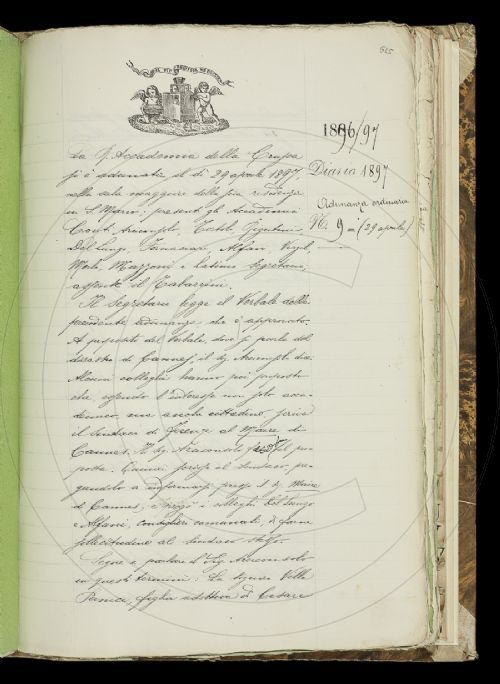 525
1896/97
Diario 1897
Adunanza ordinaria
N. 9 a (29 aprile)
La R. Accademia della Crusca
si è adunata il dì 29 aprile 1897
nella sala maggiore della sua residenza
in S. Marco: presenti gli Accademici
Conti, Arciconsolo, Tortoli,
Del Lungo, Alfani, Virgili,
Mazzoni e segretario,
assente il Tabarrini.
Il Segretario legge il Verbale della
precedente adunanza, che è approvato.
A proposito del Verbale, dove si parla del
disastro di Cannes, il Sig. Arciconsolo dice
Alcuni colleghi hanno poi proposto
che essendo l'interesse non solo acca-
demico, ma anche cittadino, scriva
il Sindaco di Firenze al Maire di
Cannes. Il Sig. Arciconsolo
posta. Quindi scrisse al Sindaco, pre-
gandolo a informarsi presso il Sig. Maire
di Cannes, e pregò i colleghi Del Lungo
e Alfani, consiglieri comunali, di farne
sollecitudine al Sindaco stesso.
Segue a parlare il Sig. Arciconsolo
in questi termini: La signora Villa
figlia adottiva di Cesare